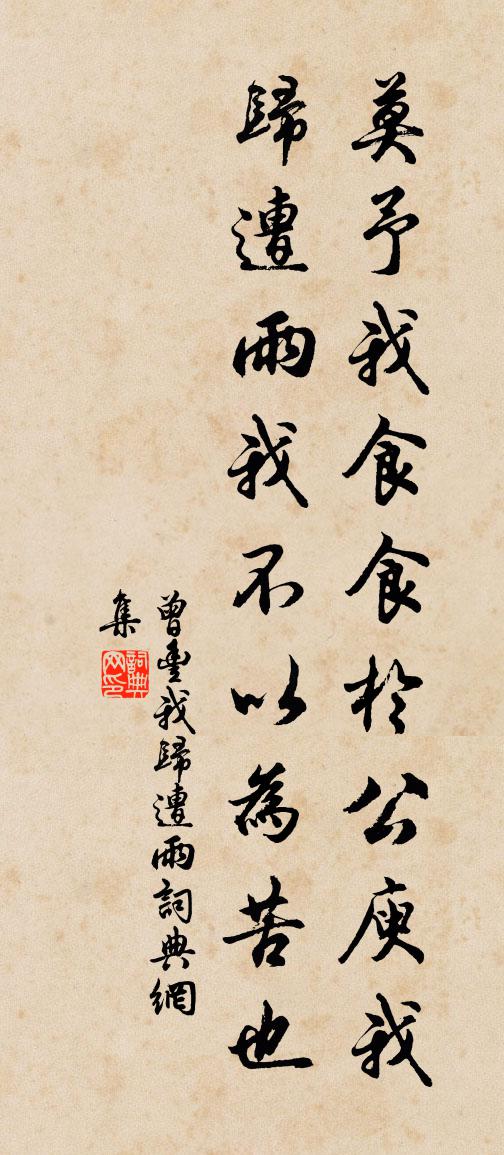 莫予我食食於公庾我
歸遭雨我不以為苦也
曾豐我歸遭雨詞典網
集
詞典
网印